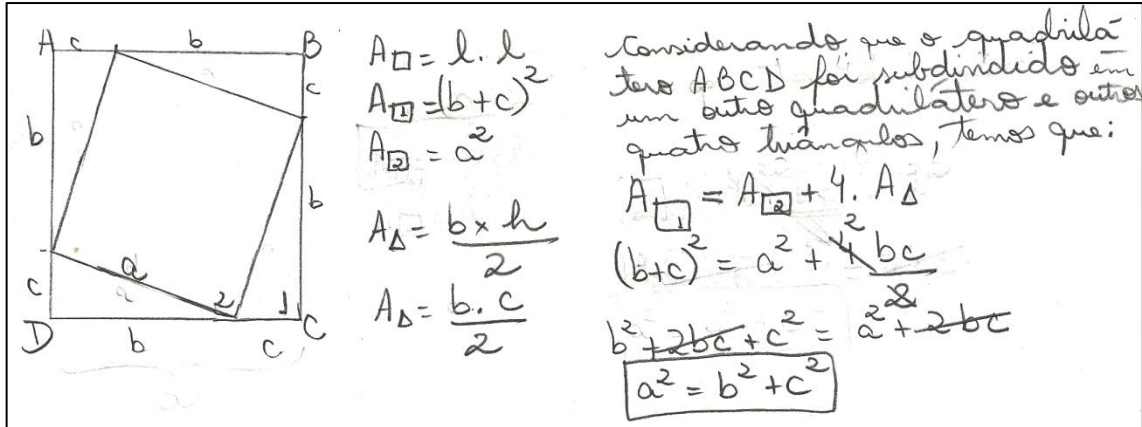 A c b B
c
b
b
a
c
2 1
D b c C
A□ = l . l
A[1] = (b+c)²
A[2] = a²
A△ = b x h / 2
A△ = b . c / 2
Considerando que o quadrilá
tero ABCD foi subdindido em
um outro quadrilátero e outros
quatro triângulos, temos que:
A[1] = A[2] + 4. A△
(b+c)² = a² + 4² bc / 2
b² + 2bc + c² = a² + 2bc
a² = b² + c²